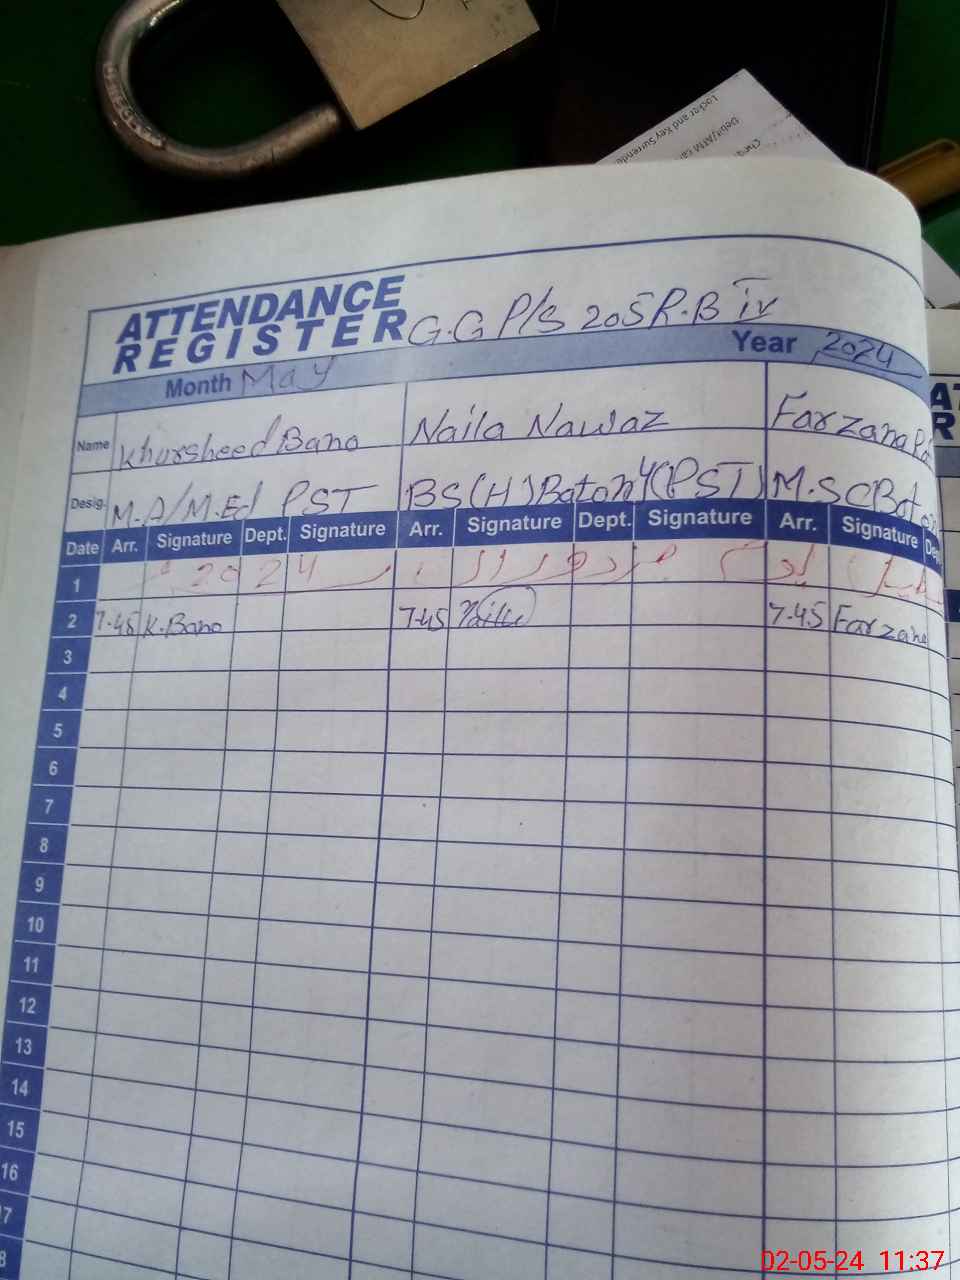 Locker and Key Surrende
Debit/ATM
ATTENDANCE
REGISTER G.G P/S 205 R.B IV
Month May Year 2024
Name Khursheed Bano Naila Nawaz Farzana
Desig. M.A/M.Ed PST BS(H)Botony(PST) M.SC Bot
Date Arr. Signature Dept. Signature Arr. Signature Dept. Signature Arr. Signature De
1 2024
2 7-45 K.Bano 7-45 Naila 7-45 Farzana
3
4
5
6
7
8
9
10
11
12
13
14
15
16
7
8
02-05-24 11:37